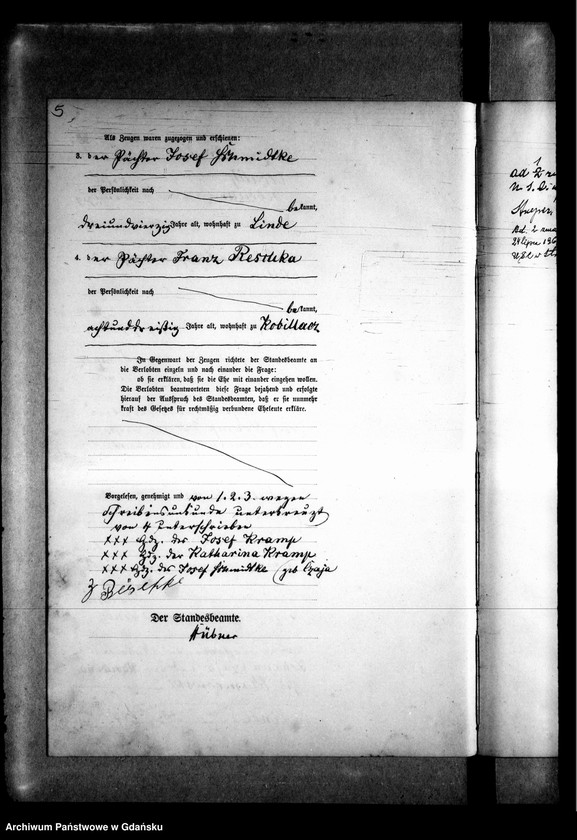 5
Als Zeugen waren zugezogen und erschienen:
3. der Pächter Josef Schmidtke
der Persönlichkeit nach
bekannt,
dreiundvierzig Jahre alt, wohnhaft zu Linde
4. der Pächter Franz Reschka
der Persönlichkeit nach
bekannt,
achtunddreißig Jahre alt, wohnhaft zu Kobillacz
In Gegenwart der Zeugen richtete der Standesbeamte an
die Verlobten einzeln und nach einander die Frage:
ob sie erklären, daß sie die Ehe mit einander eingehen wollen.
Die Verlobten beantworteten diese Frage bejahend und erfolgte
hierauf der Ausspruch des Standesbeamten, daß er sie nunmehr
kraft des Gesetzes für rechtmäßig verbundene Eheleute erkläre.
Vorgelesen, genehmigt und von 1. 2. 3. wegen
Schreibensunkunde unterkreuzt
von 4 unterschrieben
xxx Hdz. des Josef Kramp
xxx Hdz. der Katharina Kramp
xxx Hdz. des Josef Schmidtke (geb Czaja
Der Standesbeamte.
Hübner
1
ad 2
N 1.
Ad. 2
Archiwum Państwowe w Gdańsku